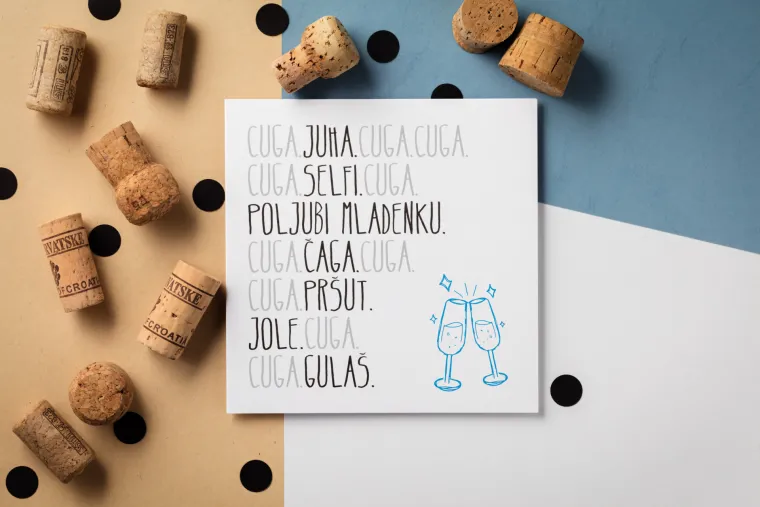 CUGA.JUHA.CUGA.CUGA.
CUGA.SELFI.CUGA.
POLJUBI MLADENKU.
CUGA.ČAGA.CUGA.
CUGA.PRŠUT.
JOLE.CUGA.
CUGA.GULAŠ.
RVATSKE
OF CROATI
VATSKE
OF CROATIA